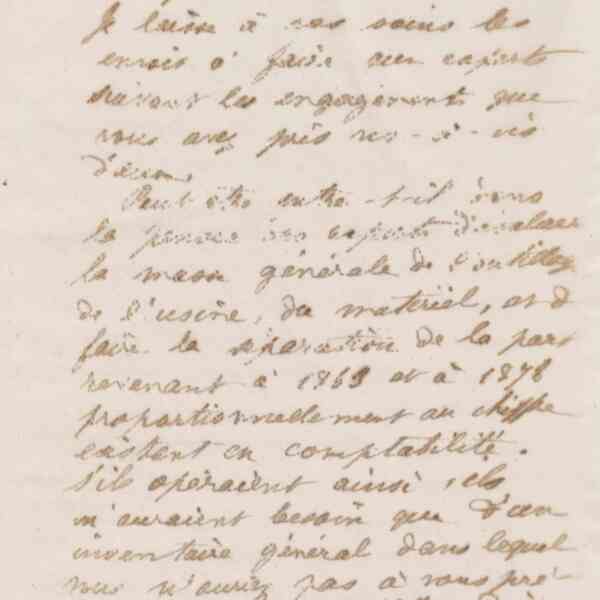 Je laisse à vos soins les
envois à faire aux experts
suivant les engagements que
vous avez pris vis-à-vis
d'eux.
Peut être entre-t-il dans
la pensée des experts d'évaluer
la masse générale de l'outillage
de l'usine, du matériel, et d
faire la séparation de la part
revenant à 1869 et à 1878
proportionnellement au chiffre
existant en comptabilité.
S'ils opéraient ainsi, ils
n'auraient besoin que d'un
inventaire général dans lequel
vous n'auriez pas à vous pré